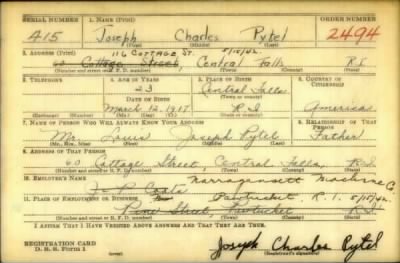 SERIAL NUMBER 1. NAME (Print) ORDER NUMBER
415 Joseph Charles Pytel 2494
(First) (Middle) (Last)
2. ADDRESS (Print) 116 COTTAGE ST. 5/15/42.
60 Cottage Street, Central Falls R.I.
(Number and street or R. F. D. number) (Town) (County) (State)
3. TELEPHONE 4. AGE IN YEARS 5. PLACE OF BIRTH 6. COUNTRY OF CITIZENSHIP
23 Central Falls
DATE OF BIRTH (Town or county)
March 12, 1917 R.I. American
(Exchange) (No.) (Mo.) (Day) (Yr.) (State or country)
7. NAME OF PERSON WHO WILL ALWAYS KNOW YOUR ADDRESS 8. RELATIONSHIP OF THAT PERSON
Mr. Louis Joseph Pytel Father
(Mr., Mrs., Miss) (First) (Middle) (Last)
9. ADDRESS OF THAT PERSON
60 Cottage Street, Central Falls, R.I.
(Number and street or R. F. D. number) (Town) (County) (State)
10. EMPLOYER'S NAME Narragansett Machine Co.
J. P. Coats
11. PLACE OF EMPLOYMENT OR BUSINESS Pawtucket, R.I. 5/15/42.
Pine Street, Pawtucket R.I.
(Number and street or R. F. D. number) (Town) (County) (State)
I AFFIRM THAT I HAVE VERIFIED ABOVE ANSWERS AND THAT THEY ARE TRUE.
REGISTRATION CARD
D. S. S. Form 1
Joseph Charles Pytel
(Registrant's signature)